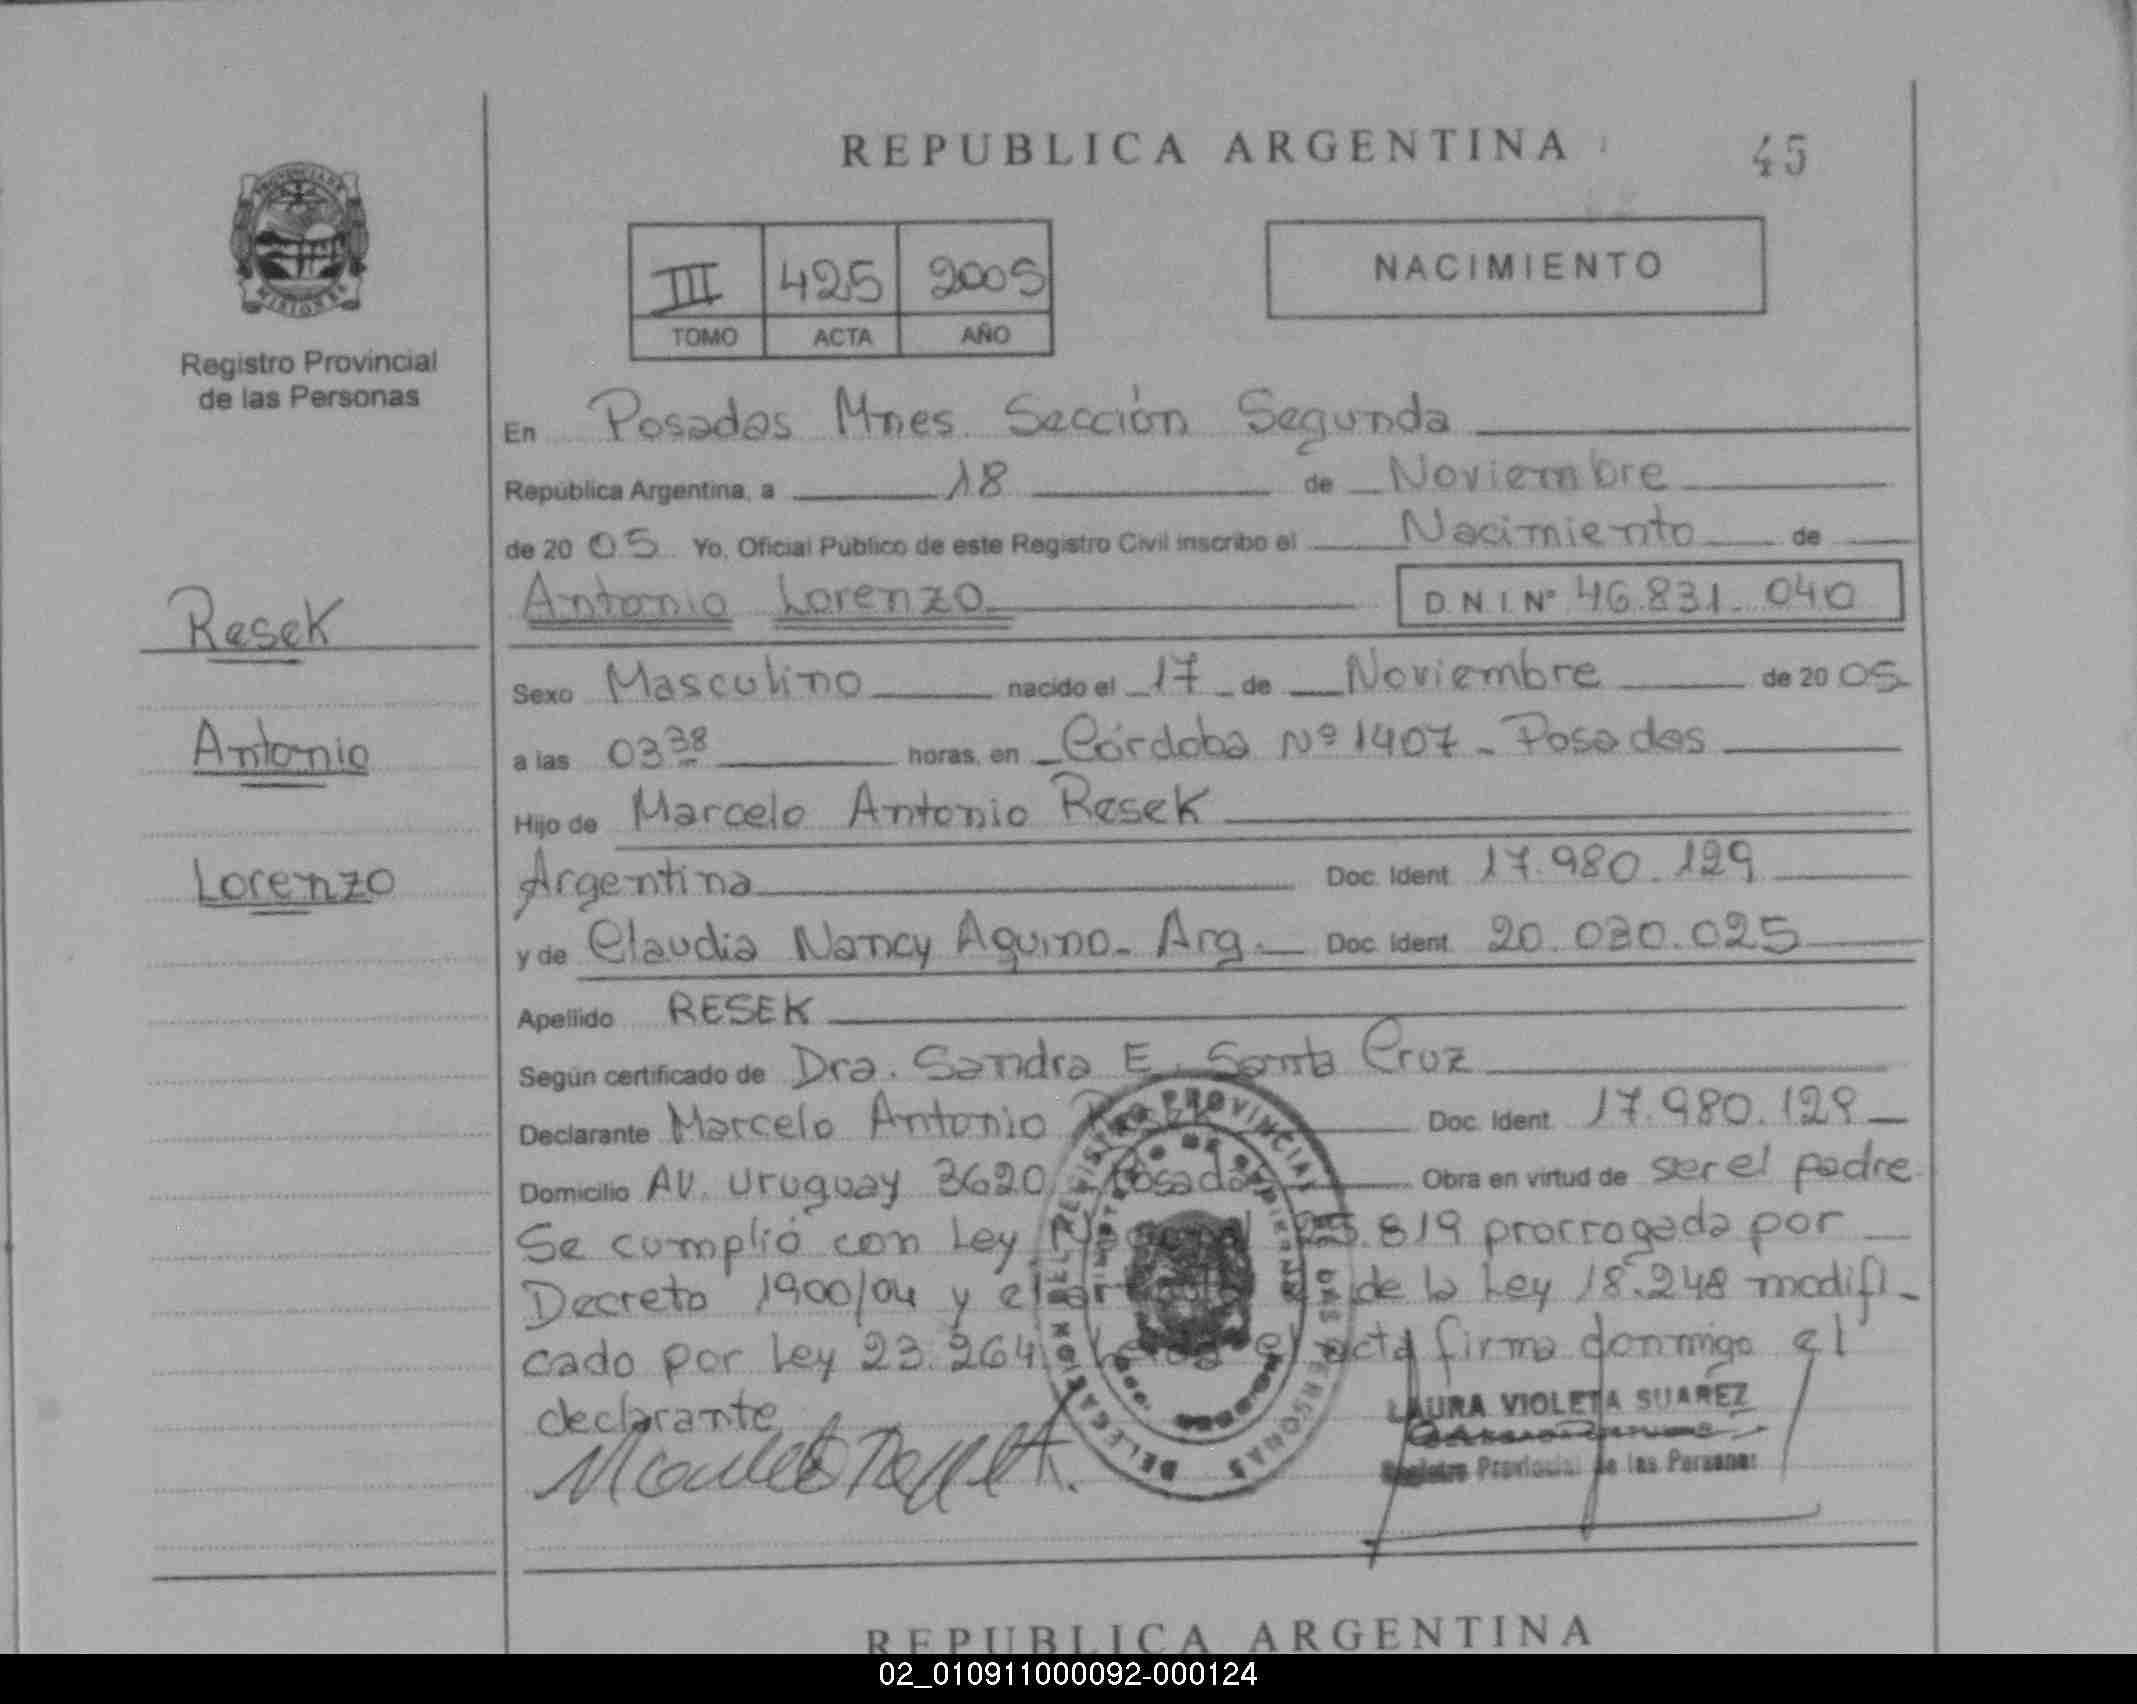 REPUBLICA ARGENTINA
45
PROVINCIA DE
MISIONES
Registro Provincial
de las Personas
III 425 2005
TOMO ACTA AÑO
NACIMIENTO
En Posadas Mnes. Sección Segunda
República Argentina, a 18 de Noviembre
de 20 05 Yo, Oficial Público de este Registro Civil inscribo el Nacimiento de
Antonio Lorenzo D.N.I. Nº 46.831.040
Resek
Antonio
Lorenzo
Sexo Masculino nacido el 17 de Noviembre de 20 05
a las 03 38 horas, en Córdoba Nº 1407 - Posadas
Hijo de Marcelo Antonio Resek
Argentina Doc. Ident. 17.980.129
y de Claudia Nancy Aquino - Arg. Doc. Ident. 20.030.025
Apellido RESEK
Según certificado de Dra. Sandra E. Santa Cruz
Declarante Marcelo Antonio Resek Doc. Ident. 17.980.129
Domicilio AV. Uruguay 3620 Posadas Obra en virtud de ser el padre
Se cumplió con Ley 25.819 prorrogada por
Decreto 1900/04 y el art de la Ley 18.248 modifi-
cado por Ley 23.264 Leida el acta firma conmigo el
declarante
REGISTRO PROVINCIAL DE LAS PERSONAS
LAURA VIOLETA SUAREZ
Registro Provincial de las Personas
REPUBLICA ARGENTINA
02_010911000092-000124